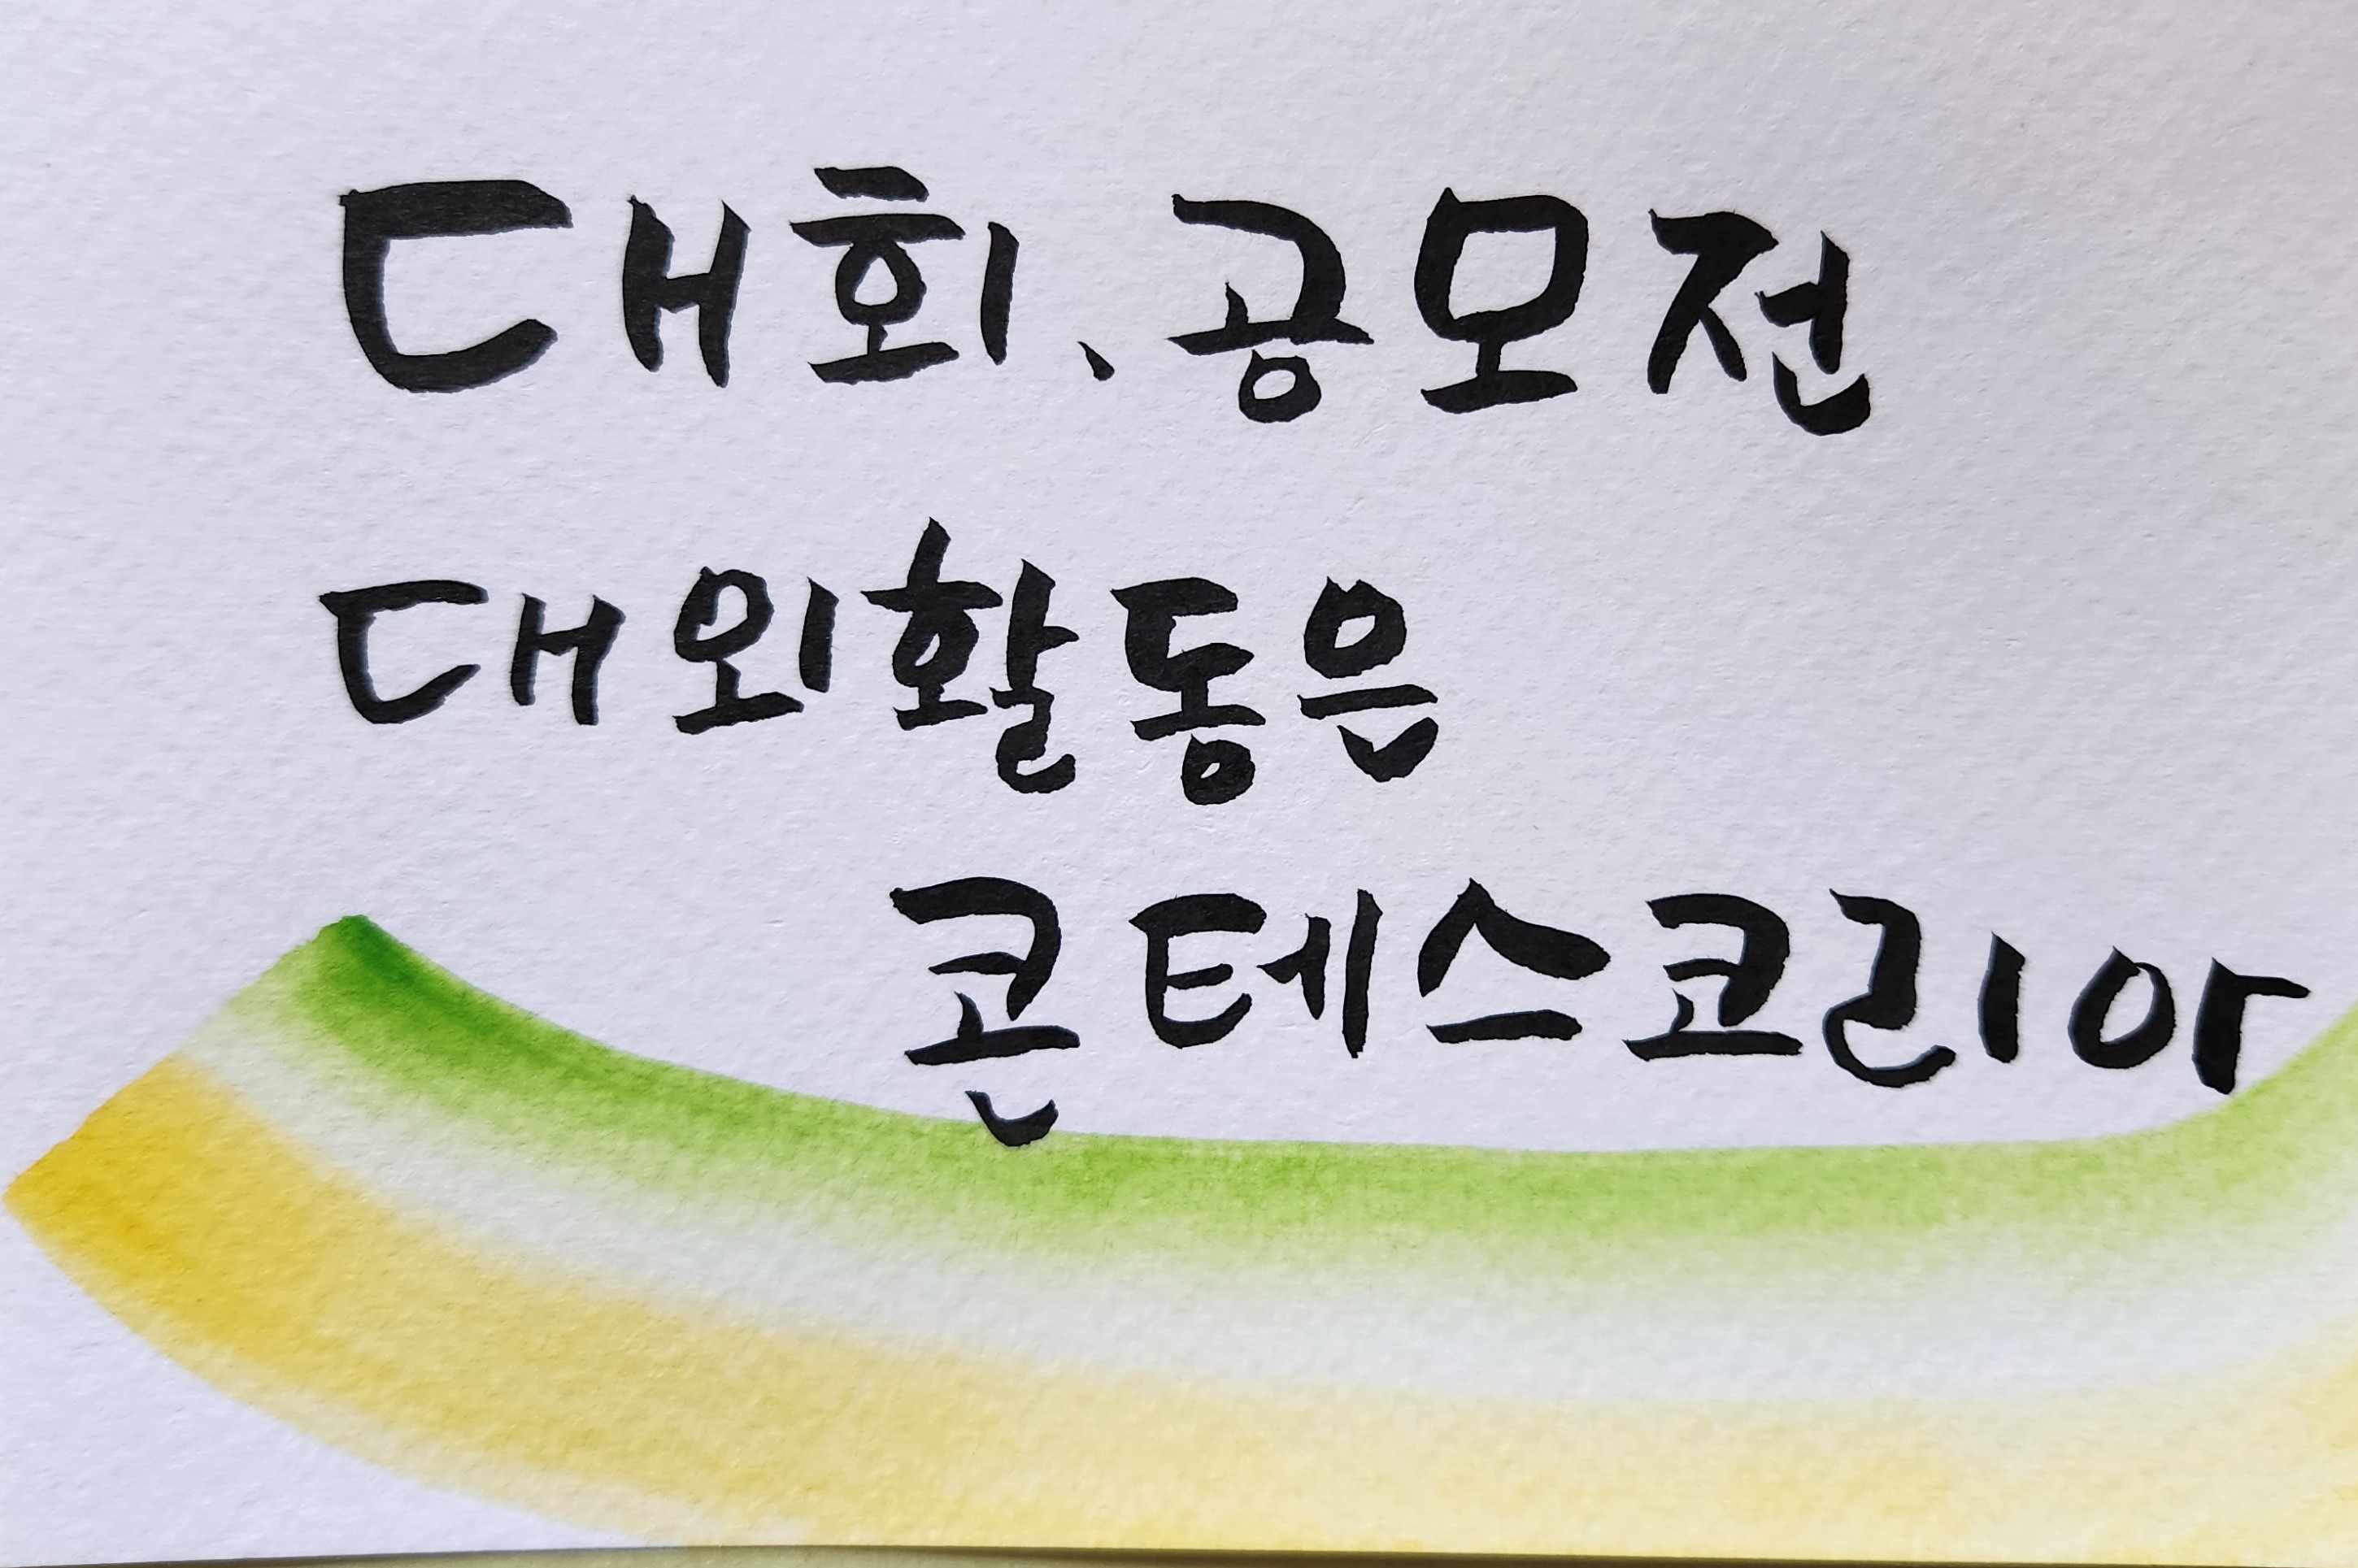 대회、공모전
대외활동은
콘테스코리아